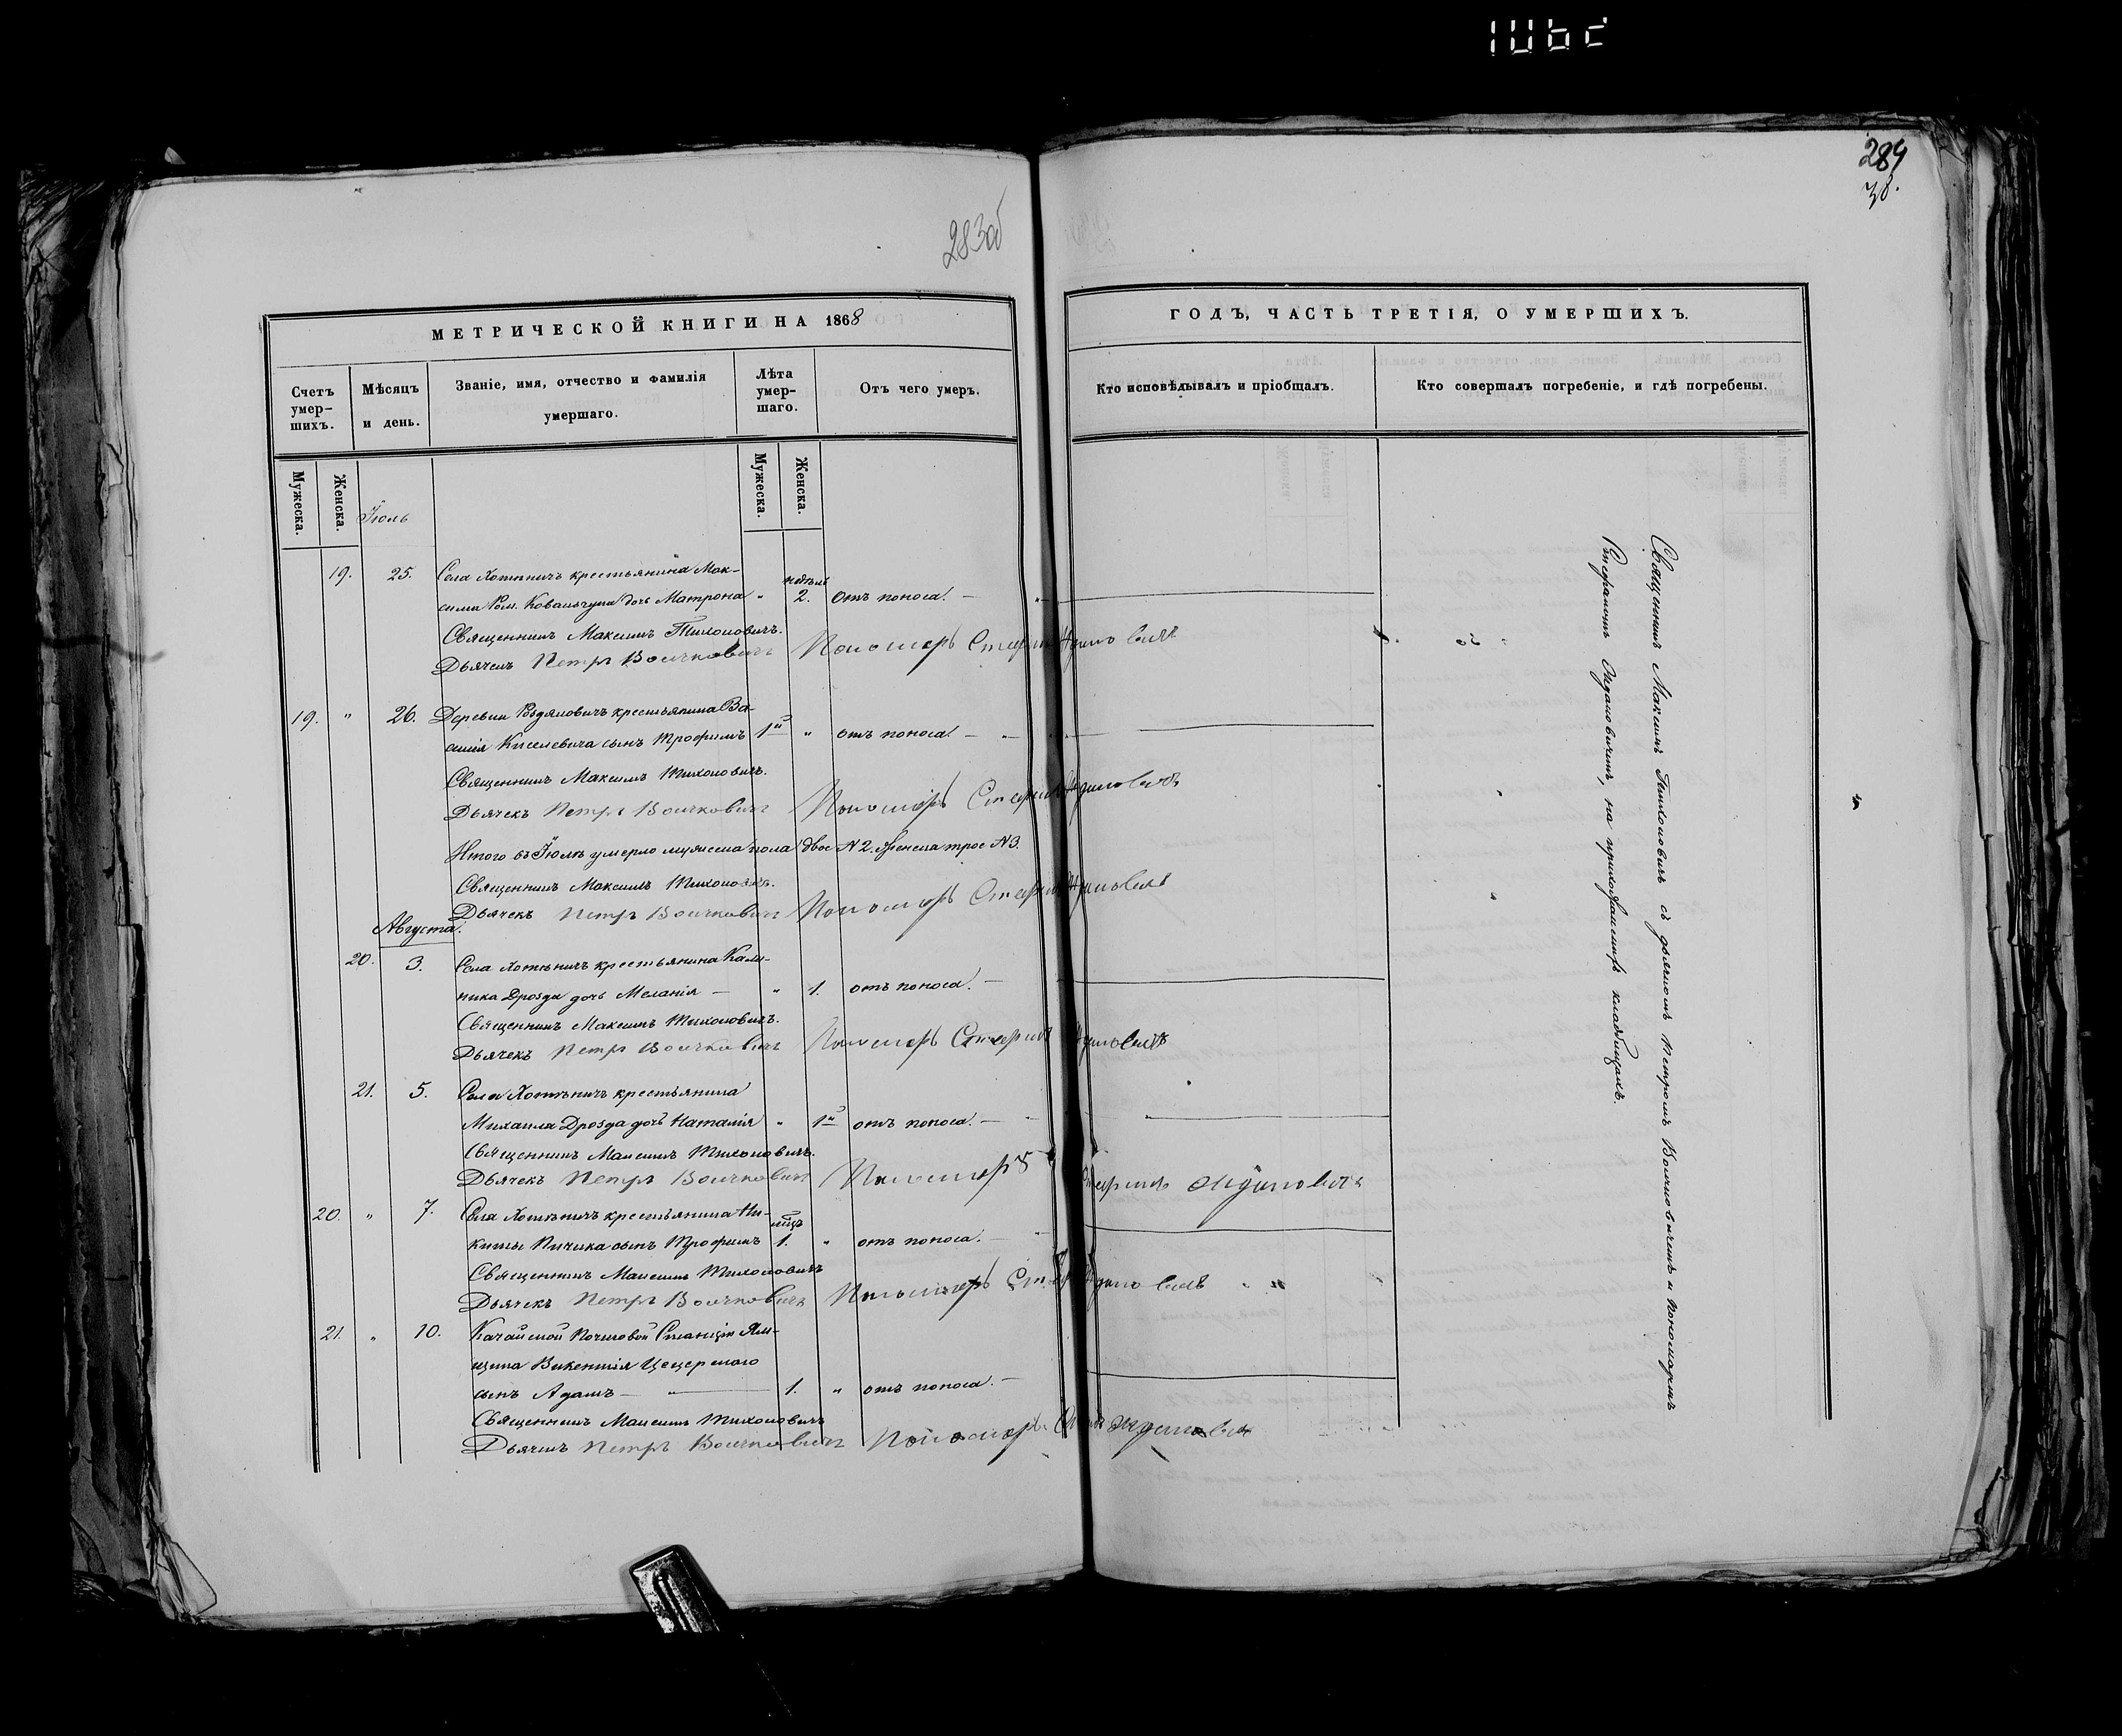 283об
284
38.
МЕТРИЧЕСКОЙ КНИГИ НА 1868
Счетъ умер-шихъ.
Мѣсяцъ и день.
Званіе, имя, отчество и фамилія умершаго.
Лѣта умер-шаго.
Отъ чего умеръ.
Мужеска.
Женска.
Мужеска.
Женска.
Іюль
19. 25. Села Хотѣничъ крестьянина Мак-
сима Ром. Ковальчука дочь Матрона " недѣли 2. отъ поноса. —
Священникъ Максимъ Тихоновичъ.
Дьячекъ Петръ Воичковичъ Пономарь Стефанъ Ждановичъ
19. " 26. Деревни Роздяловичъ крестьянина Ва-
силія Киселевича сынъ Трофимъ 1й " отъ поноса. —
Священникъ Максимъ Тихоновичъ.
Дьячекъ Петръ Воичковичъ Пономарь Стефанъ Ждановичъ
Итого въ Іюлѣ умерло мужеска пола двое №2. женска трое №3.
Священникъ Максимъ Тихоновичъ.
Дьячекъ Петръ Воичковичъ Пономарь Стефанъ Ждановичъ
Августа.
20. 3. Села Хотѣничъ крестьянина Кали-
ника Дрозда дочь Меланія — " 1. отъ поноса. —
Священникъ Максимъ Тихоновичъ.
Дьячекъ Петръ Воичковичъ Пономарь Стефанъ Ждановичъ
21. 5. Села Хотѣничъ крестьянина
Михаила Дрозда дочь Наталія " 1й отъ поноса. —
Священникъ Максимъ Тихоновичъ.
Дьячекъ Петръ Воичковичъ Пономарь Стефанъ Ждановичъ
20. " 7. Села Хотѣничъ крестьянина Ни-
киты Пичика сынъ Трофимъ 1. " отъ поноса. —
Священникъ Максимъ Тихоновичъ
Дьячекъ Петръ Воичковичъ Пономарь Стефанъ Ждановичъ
21. " 10. Почтовой Станціи Ям-
щика Викентія Цецерскаго
сынъ Адамъ — 1. " отъ поноса. —
Священникъ Максимъ Тихоновичъ
Дьячекъ Петръ Воичковичъ Пономарь Стефанъ Ждановичъ
ГОДЪ, ЧАСТЬ ТРЕТІЯ, О УМЕРШИХЪ.
Кто исповѣдывалъ и пріобщалъ.
Кто совершалъ погребеніе, и гдѣ погребены.
Священникъ Максимъ Тихоновичъ съ дьячкомъ Петромъ Воичковичемъ и пономаремъ
Стефаномъ Ждановичемъ, на приходскомъ кладбищахъ.